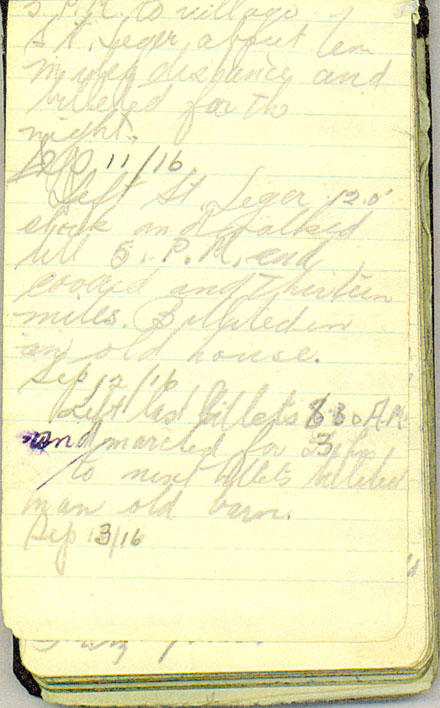 5. P.M. to village
St. Leger about ten
miles distance and
billeted for the
night.
Sep 11/16
Left St. Leger 12.0'
clock and walked
till 5. P.M. and
covered and thirteen
miles. Billeted in
an old house.
Sep 12/16
Left last billets 8 30 A.M.
and marched for 3
to next billets billeted
in an old barn.
Sep 13/16